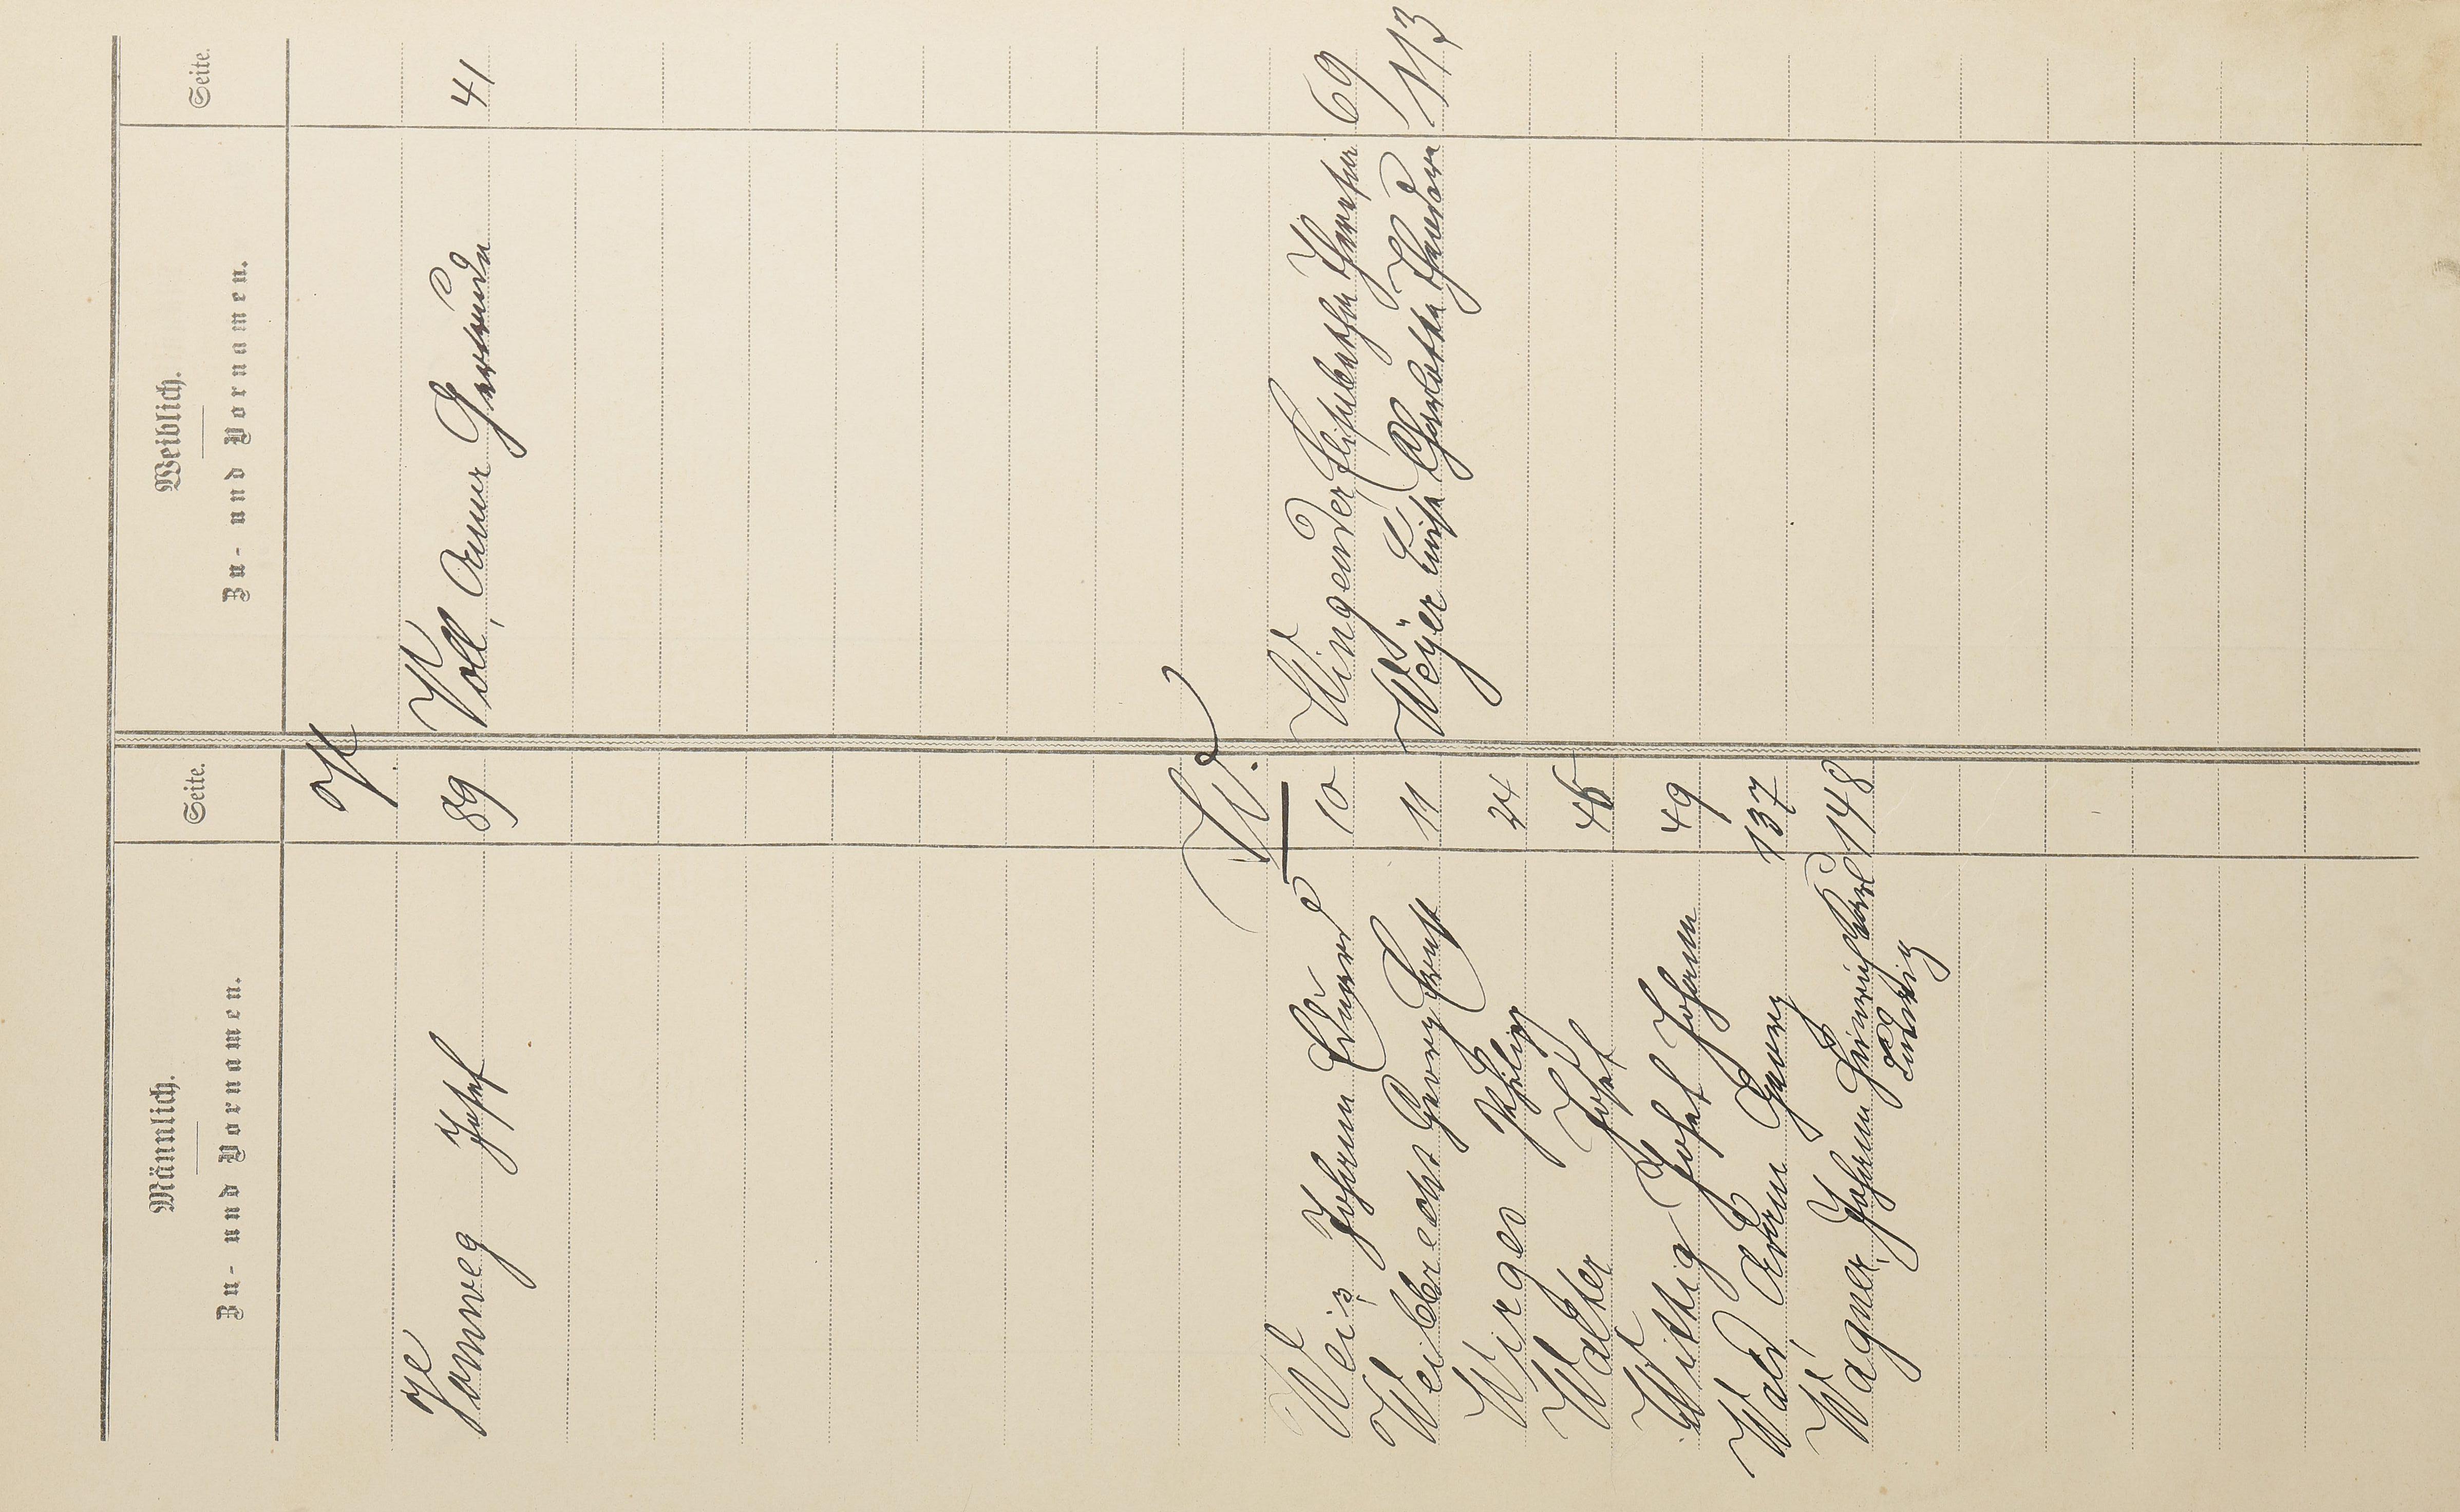 Männlich.
Zu- und Vornamen.
Seite.
Weiblich.
Zu- und Vornamen.
Seite.
V.
Vomweg Josef 89
Voll, Anna Gertrude 41
W.
Weiß, Johann Eduard 10
Wingender, Elisabetha Theresia 69
Weibbrecht Georg Ernst 11
Weÿer Luise Charlotte Theodore 113
Wirges Philipp 24
Walter Josef 46
Wittig Josef Johann 49
Wald, Adam Georg 137
Wagner, Johann Heinrich Karl 148
Ludwig